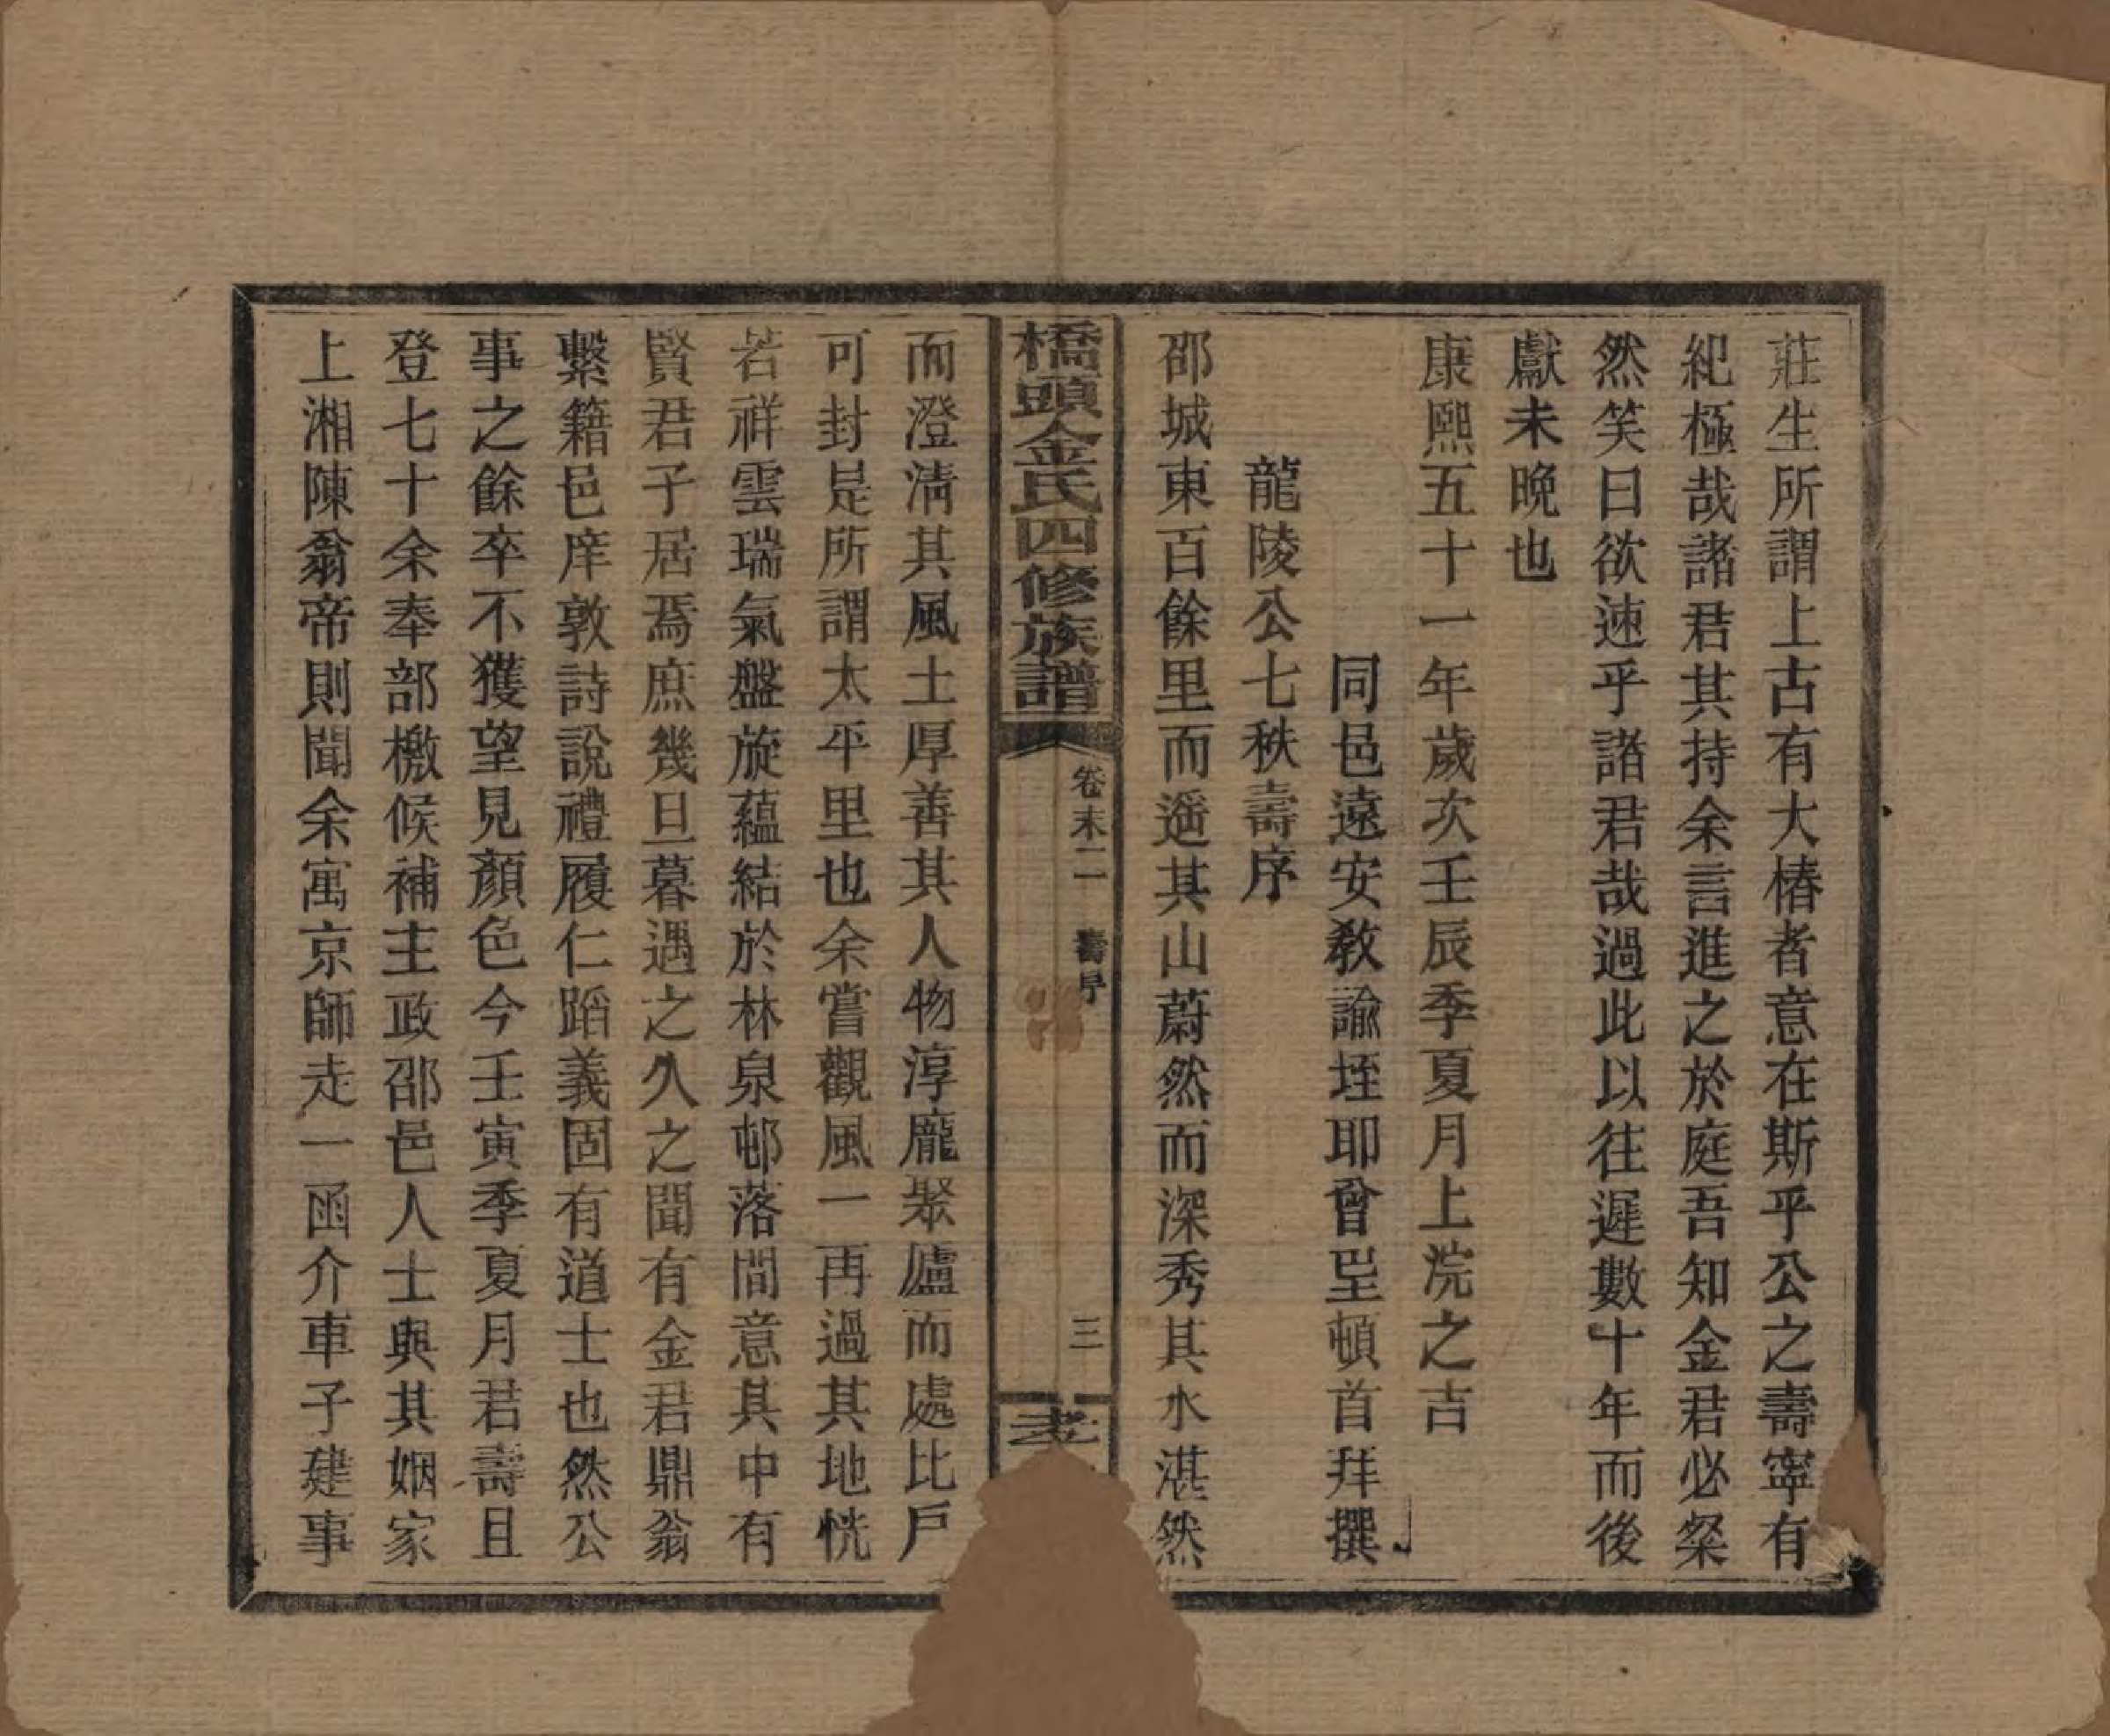 莊生所謂上古有大椿者意在斯乎公之壽寧有
紀極哉諸君其持余言進之於庭吾知金君必粲
然笑曰欲速乎諸君哉過此以往遲數十年而後
獻未晚也
康熙五十一年歲次壬辰季夏月上浣之吉
同邑遠安教諭垤耶曾坒頓首拜撰
龍陵公七秩壽序
邵城東百餘里而遥其山蔚然而深秀其水湛然
橋頭金氏四修族譜
卷末二 壽序
三
而澄清其風土厚善其人物淳龐聚廬而處比戶
可封是所謂太平里也余嘗觀風一再過其地恍
若祥雲瑞氣盤旋蘊結於林泉邨落間意其中有
賢君子居焉庶幾旦暮遇之久之聞有金君鼎翁
繫籍邑庠敦詩說禮履仁蹈義固有道士也然公
事之餘卒不獲望見顏色今壬寅季夏月君壽且
登七十余奉部檄候補主政邵邑人士與其姻家
上湘陳翁帝則聞余寓京師走一函介車子建事